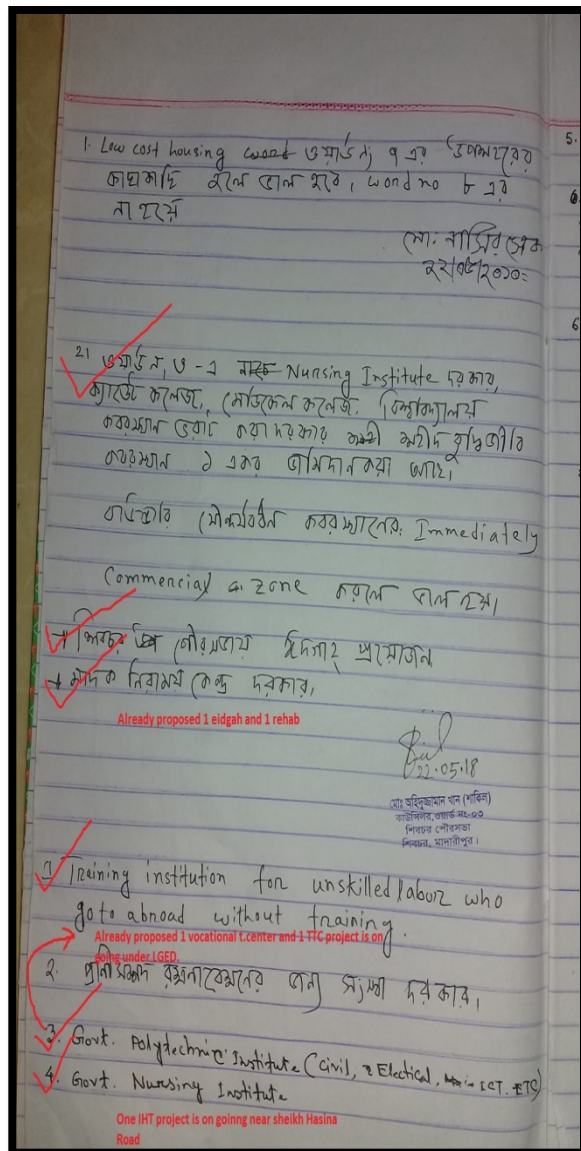 1. Low cost housing ward ওয়ার্ড নং ৭ এর উপশহরের
কাছাকাছি হলে ভাল হবে, word no ৮ এর
না হয়ে
মো: নাসির
২২/০৫/২০১০
5.
6
21 ওয়ার্ড নং ৩ - এ Nursing Institute দরকার,
ক্যাডেট কলেজ, মেডিকেল কলেজ, বিশ্ববিদ্যালয়
কবরস্থান ভরাট করা দরকার শহীদ বুদ্ধিজীবি
কবরস্থান ১ একর জমি দান করা আছে।
বাউন্ডারি সৌন্দর্যবর্ধন কবরস্থানের। Immediately
Commercial a. zone করলে ভাল হয়।
→ শিবচর পৌরসভায় ঈদগাহ প্রয়োজন
→ মাদক নিরাময় কেন্দ্র দরকার,
Already proposed 1 eidgah and 1 rehab
22.05.18
কাউন্সিলর, ওয়ার্ড নং-০৩
শিবচর পৌরসভা
শিবচর, মাদারীপুর।
1 Training institution for unskilled labour who
go to abroad without training.
Already proposed 1 vocational t.center and 1 TTC project is on
going under LGED.
২. প্রাণী সম্পদ রক্ষনাবেক্ষনের জন্য সংস্থা দরকার,
3. Govt. Polytechnic Institute (Civil, Electical, ICT. ETC)
4. Govt. Nursing Institute
One IHT project is on goinng near sheikh Hasina
Road